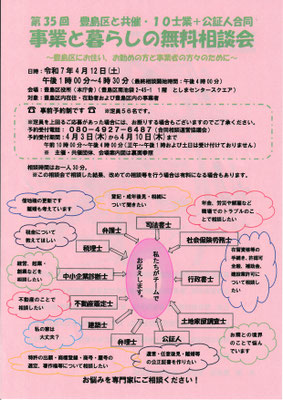 第35回 豊島区と共催・10士業+公証人合同
事業と暮らしの無料相談会
～豊島区にお住い、お勤めの方と事業者の方々のために～
日時：令和7年4月12日(土)
午後1時00分～4時30分（最終相談開始時間：午後4時00分）
会場：豊島区役所（本庁舎）（豊島区南池袋2-45-1 1階 としまセンタースクエア）
対象：豊島区内在住・在勤者および豊島区内の事業者
☎ 事前予約制です ※定員56名です。
※定員を上回るご応募があった場合には、お断りする場合もございますのでご了承ください。
予約受付電話：080-4927-6487（合同相談運営協議会）
予約受付期間：4月3日(木)から4月10日(木)まで
午前10時00分～午後4時00分（正午～午後1時および土日は受け付けておりません）
※ 主催・共催団体、会場案内図は裏面参照
相談時間はお一人30分。
※この相談会で相談した結果、改めての相談等を行う場合は有料になる場合もあります。
私たちがチームで
お応えします。
弁護士
司法書士
税理士
社会保険労務士
中小企業診断士
行政書士
不動産鑑定士
土地家屋調査士
建築士
弁理士
公証人
借地権の更新で
登記・成年後見・相続に
ついて聞きたい
年金、労災や解雇など
職場でのトラブルのこと
で相談したい
税金について
教えてほしい
経営、起業・
創業などを
相談したい
不動産のことで
相談したい
私の家は
大丈夫？
お隣との境界
のことで悩ん
でいます
特許の出願・商標登録・商号・屋号の
選定、著作権等について相談したい
遺言・任意後見・離婚等
の公正証書を作りたい
お悩みを専門家にご相談ください！